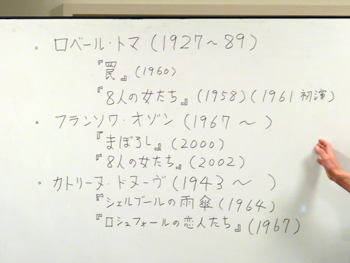 ・ロベール・トマ(1927～89)
『罠』(1960)
『8人の女たち』(1958)(1961初演)
・フランソワ・オゾン(1967～ )
『まぼろし』(2000)
『8人の女たち』(2002)
・カトリーヌ・ドヌーヴ(1943～ )
『シェルブールの雨傘』(1964)
『ロシュフォールの恋人たち』(1967)